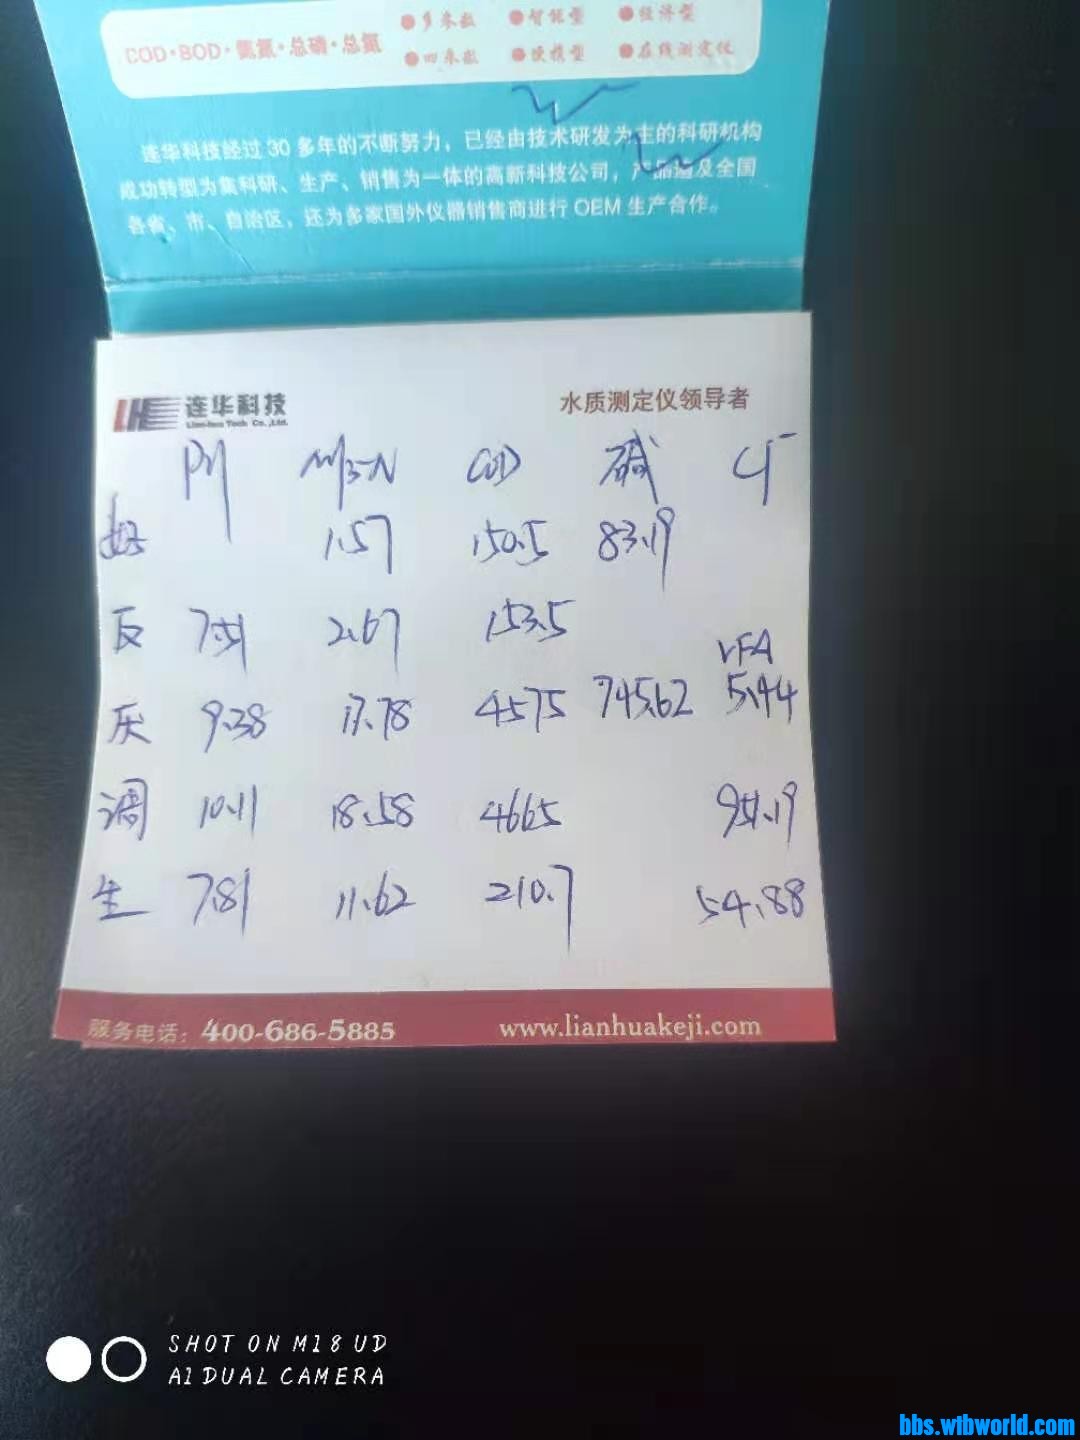 COD·BOD·氨氮·总磷·总氮
●多参数 ●智能型 ●经济型
●在线测定仪
连华科技经过30多年的不断努力，已经由技术研发为主的科研机构
成功转型为集科研、生产、销售为一体的高新科技公司，产品遍及全国
各省、市、自治区，还为多家国外仪器销售商进行OEM生产合作。
LH 连华科技 水质测定仪领导者
Lian-hua Tech Co.,Ltd.
PH NH3-N COD 碱 Cl-
好 1.57 150.5 83.19
反 7.51 2.67 153.5
VFA
厌 9.38 17.78 4575 745.62 5.44
调 10.11 18.58 4665 951.19
生 7.81 11.62 210.7 54.88
服务电话：400-686-5885 www.lianhuakeji.com
SHOT ON MI 8 UD
AI DUAL CAMERA
bbs.wtbworld.com